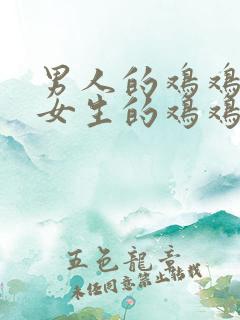 男人的鸡鸡
女生的鸡鸡
五色龍章
未经同意禁止转载